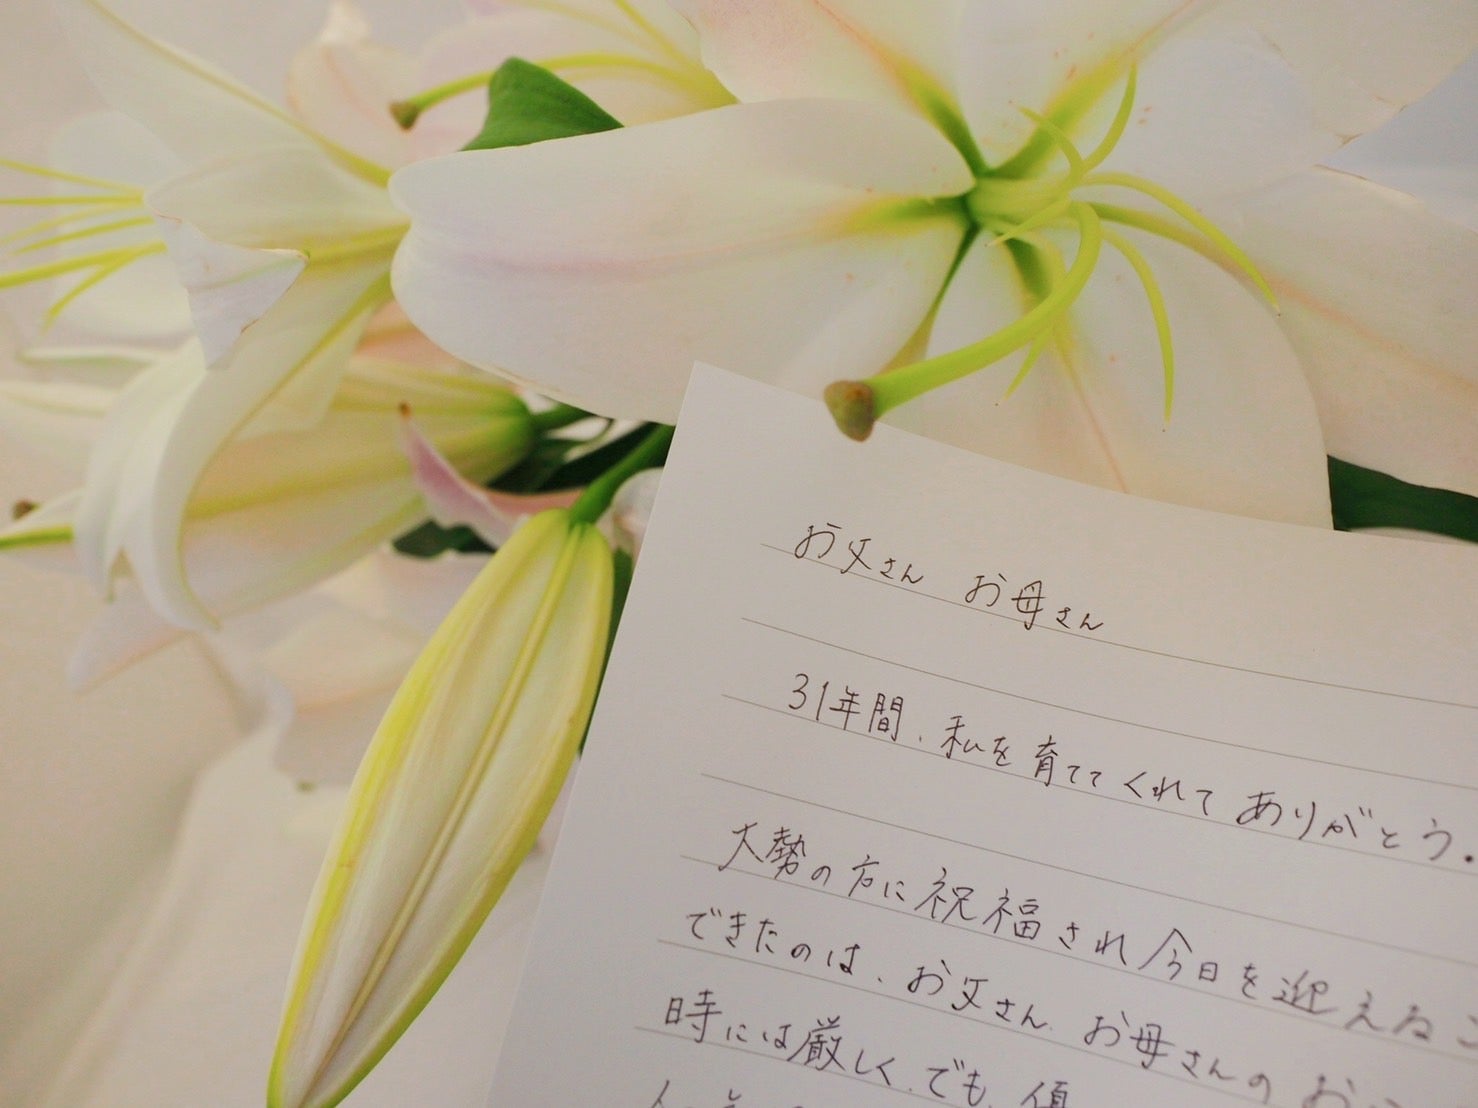 お父さん お母さん
31年間、私を育ててくれてありがとう。
大勢の方に祝福され今日を迎えるこ
できたのは、お父さん、お母さんのお
時には厳しく、でも、